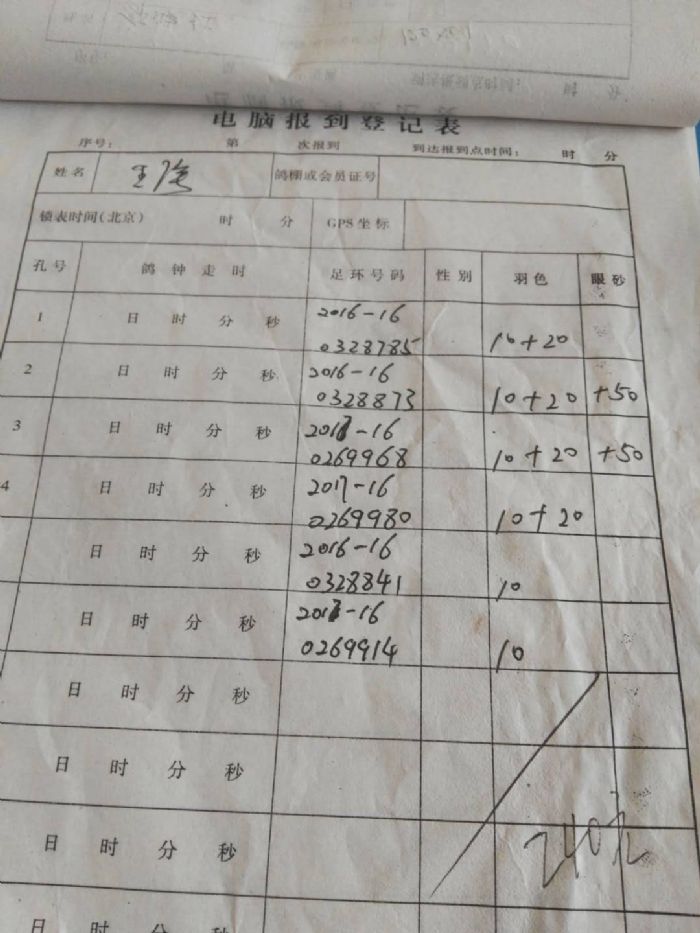 电脑报到登记表
序号: 第 次报到 到达报到点时间: 时 分
姓名 鸽棚或会员证号
锁表时间(北京) 时 分 GPS坐标
孔号 鸽钟走时 足环号码 性别 羽色 眼砂
1 日 时 分 秒 2016-16
0328785 10+20
2 日 时 分 秒 2016-16
0328873 10+20 +50
3 日 时 分 秒 2017-16
0269968 10+20 +50
4 日 时 分 秒 2017-16
0269980 10+20
日 时 分 秒 2016-16
0328841 10
日 时 分 秒 2017-16
0269914 10
日 时 分 秒
日 时 分 秒
日 时 分 秒 240元
日 时 分 秒